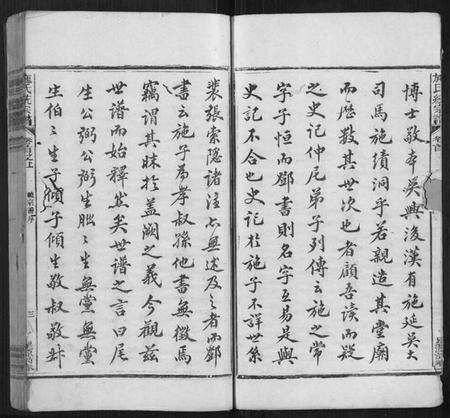 博士敬本吳興後漢有施延吳大
司馬施績洞乎若親造其堂廟
而歷數其世次也者顧吾讀而疑
之史記仲尼弟子列傳云施之常
字子恒而鄭書則名字互易是與
史記不合也史記於施子不詳世系
裴張索隱諸注亦無述及之者而鄭
書云施子為孝叔孫他書無徵馬
竊謂其昧於蓋闕之義今觀茲
世譜而始釋然矣世譜之言曰尾
生公弼公弼生朏朏生無黨無黨
生伯伯生子傾子傾生敬叔敬叔
卷首之上
三